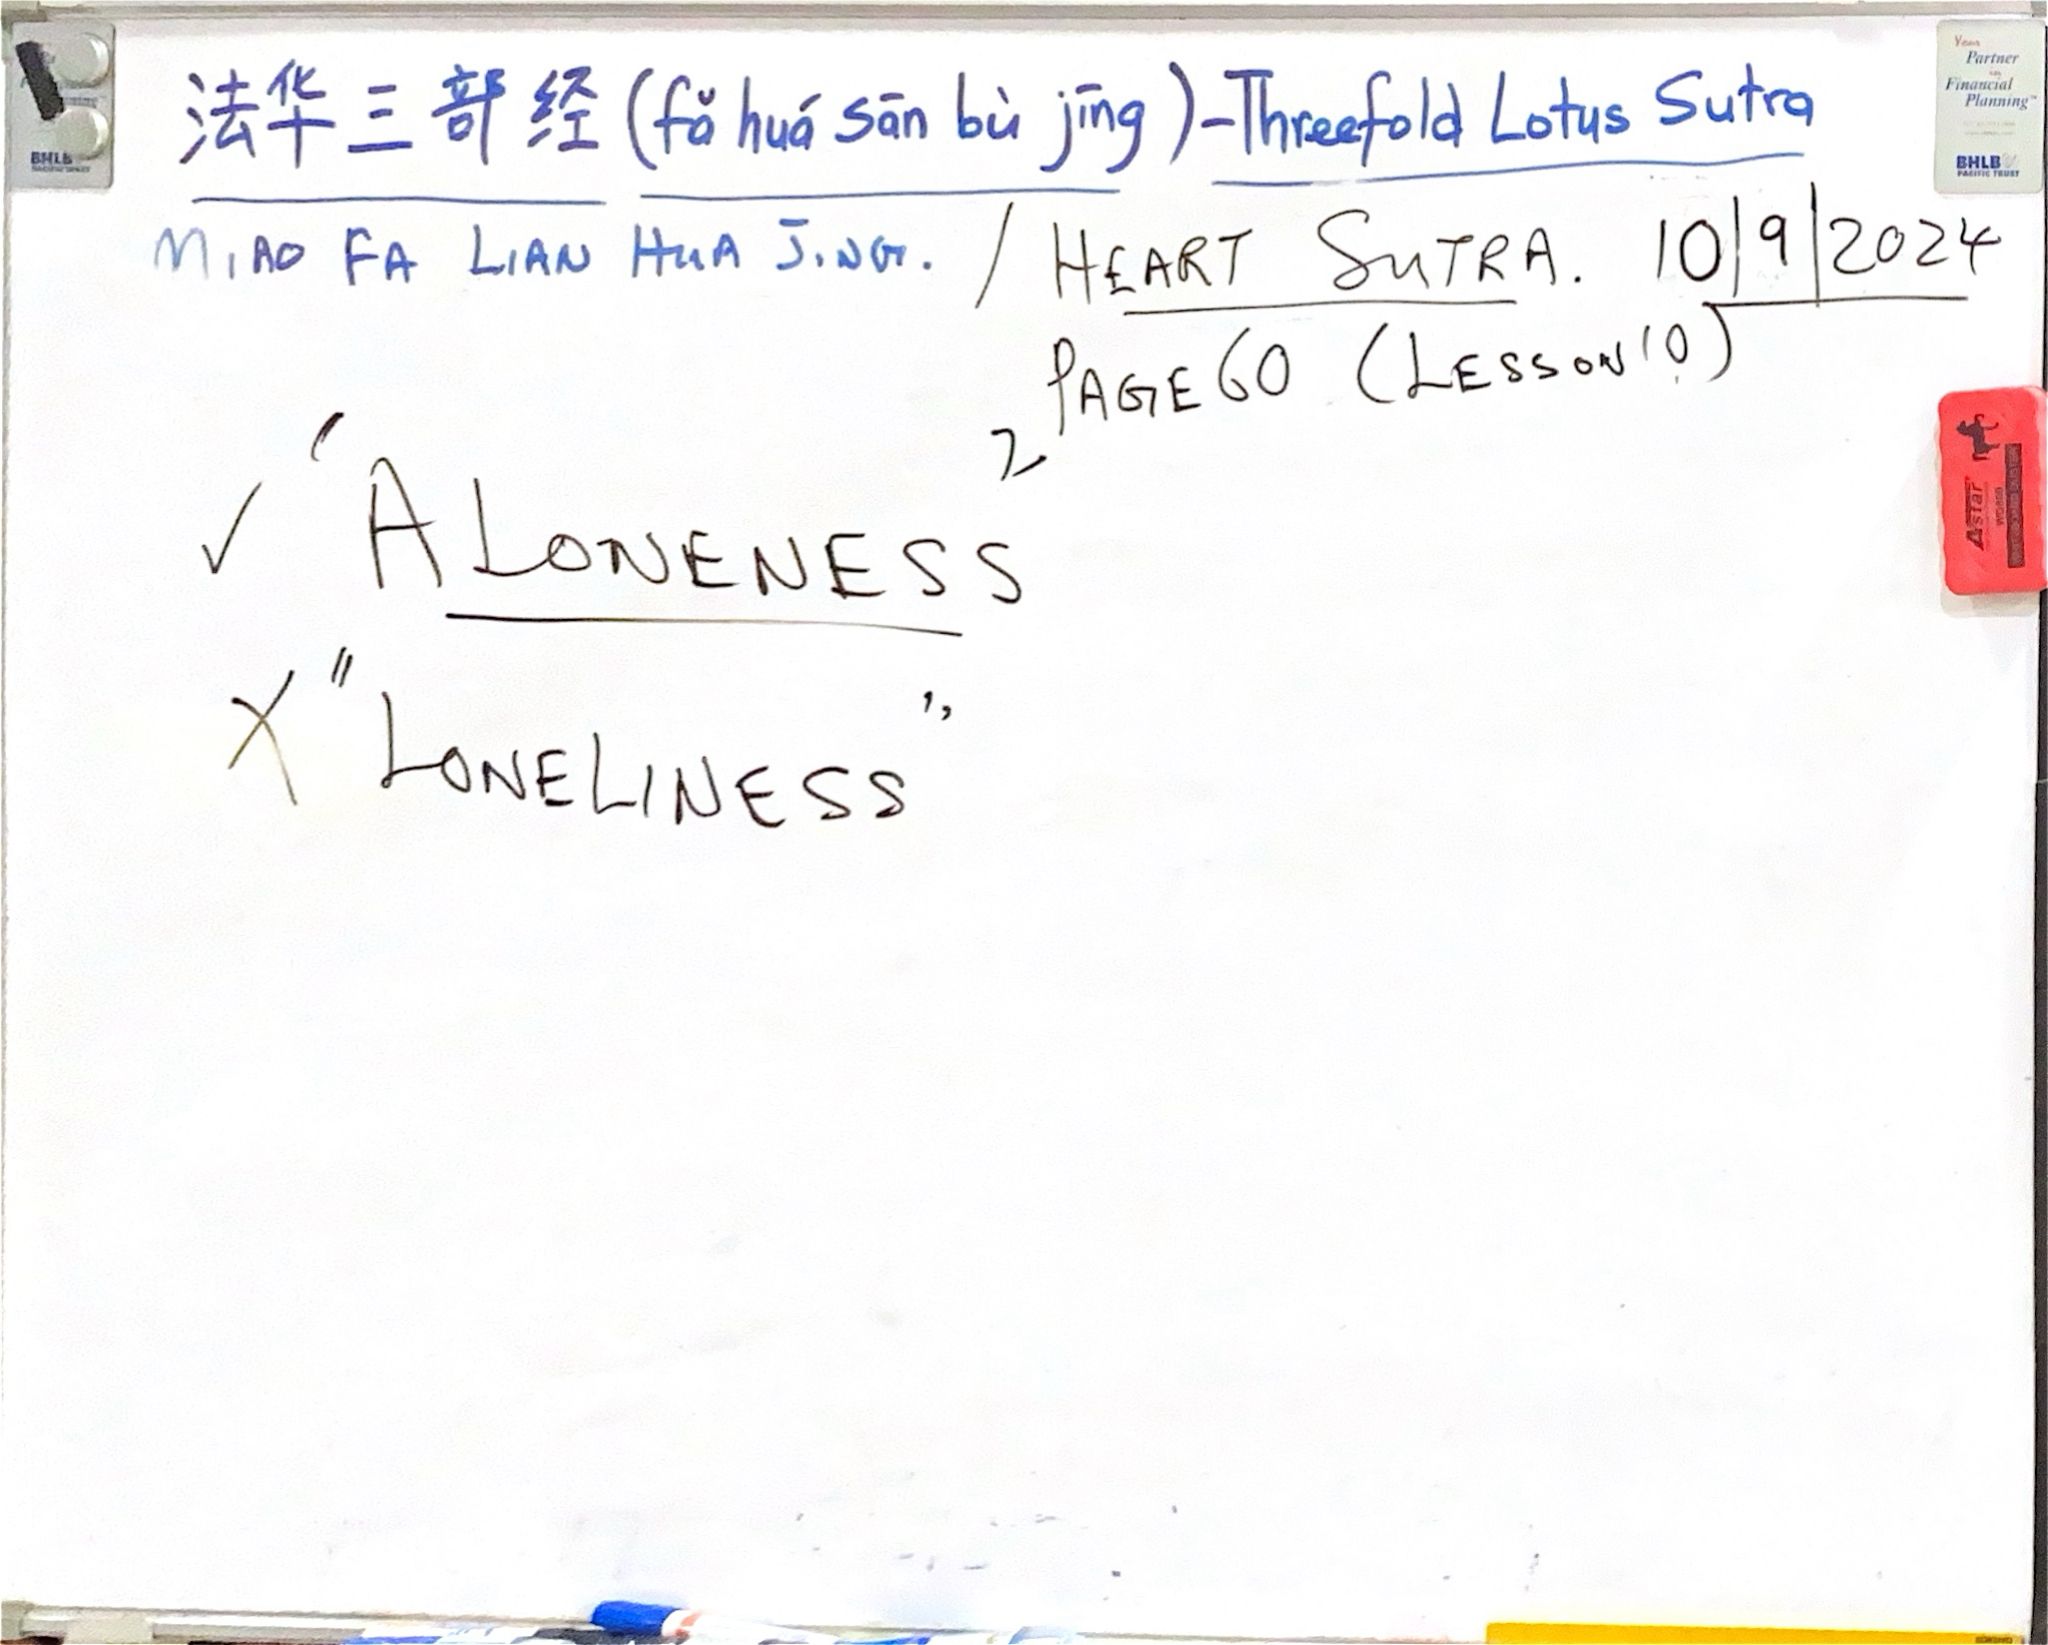 法华三部经 (fǎ huá sān bù jīng) - Threefold Lotus Sutra
MIAO FA LIAN HUA JING. / HEART SUTRA. 10/9/2024
PAGE 60 (LESSON 10)
✓ "ALONENESS
X "LONELINESS"
BHLB
Partner
Financial
Planning™
BHLB
PACIFIC TRUST
Astar